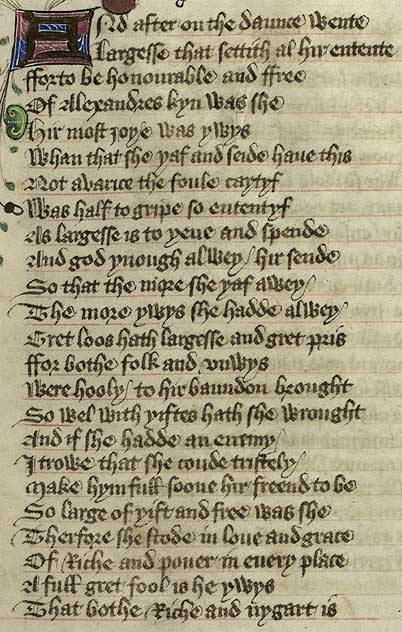 And after on the daunce wente
Largesse that settith al hir entente
fforto be honourable and ffree
Of Alexandres kyn was she
Hir most Joye was ywys
Whan that she yaf and seide haue this
Not avarice the foule caytyf
Was half to gripe so ententyf
As largesse is to yeue and spende
And god ynough alwey / hir sende
So that the more she yaf awey /
The more ywys she hadde alwey /
Gret loos hath largesse and gret pris
ffor bothe folk and vnwys
Were hooly / to hir baundon brought
So wel with yiftes hath she wrought
And if she hadde an enemy /
I trowe that she coude tristely /
Make hym full soone hir freend to be
So large of yift and free was she
Therfore she stode in loue and grace
Of Riche and pouer in euery place
A full gret fool is he ywys
That bothe Riche and nygart is